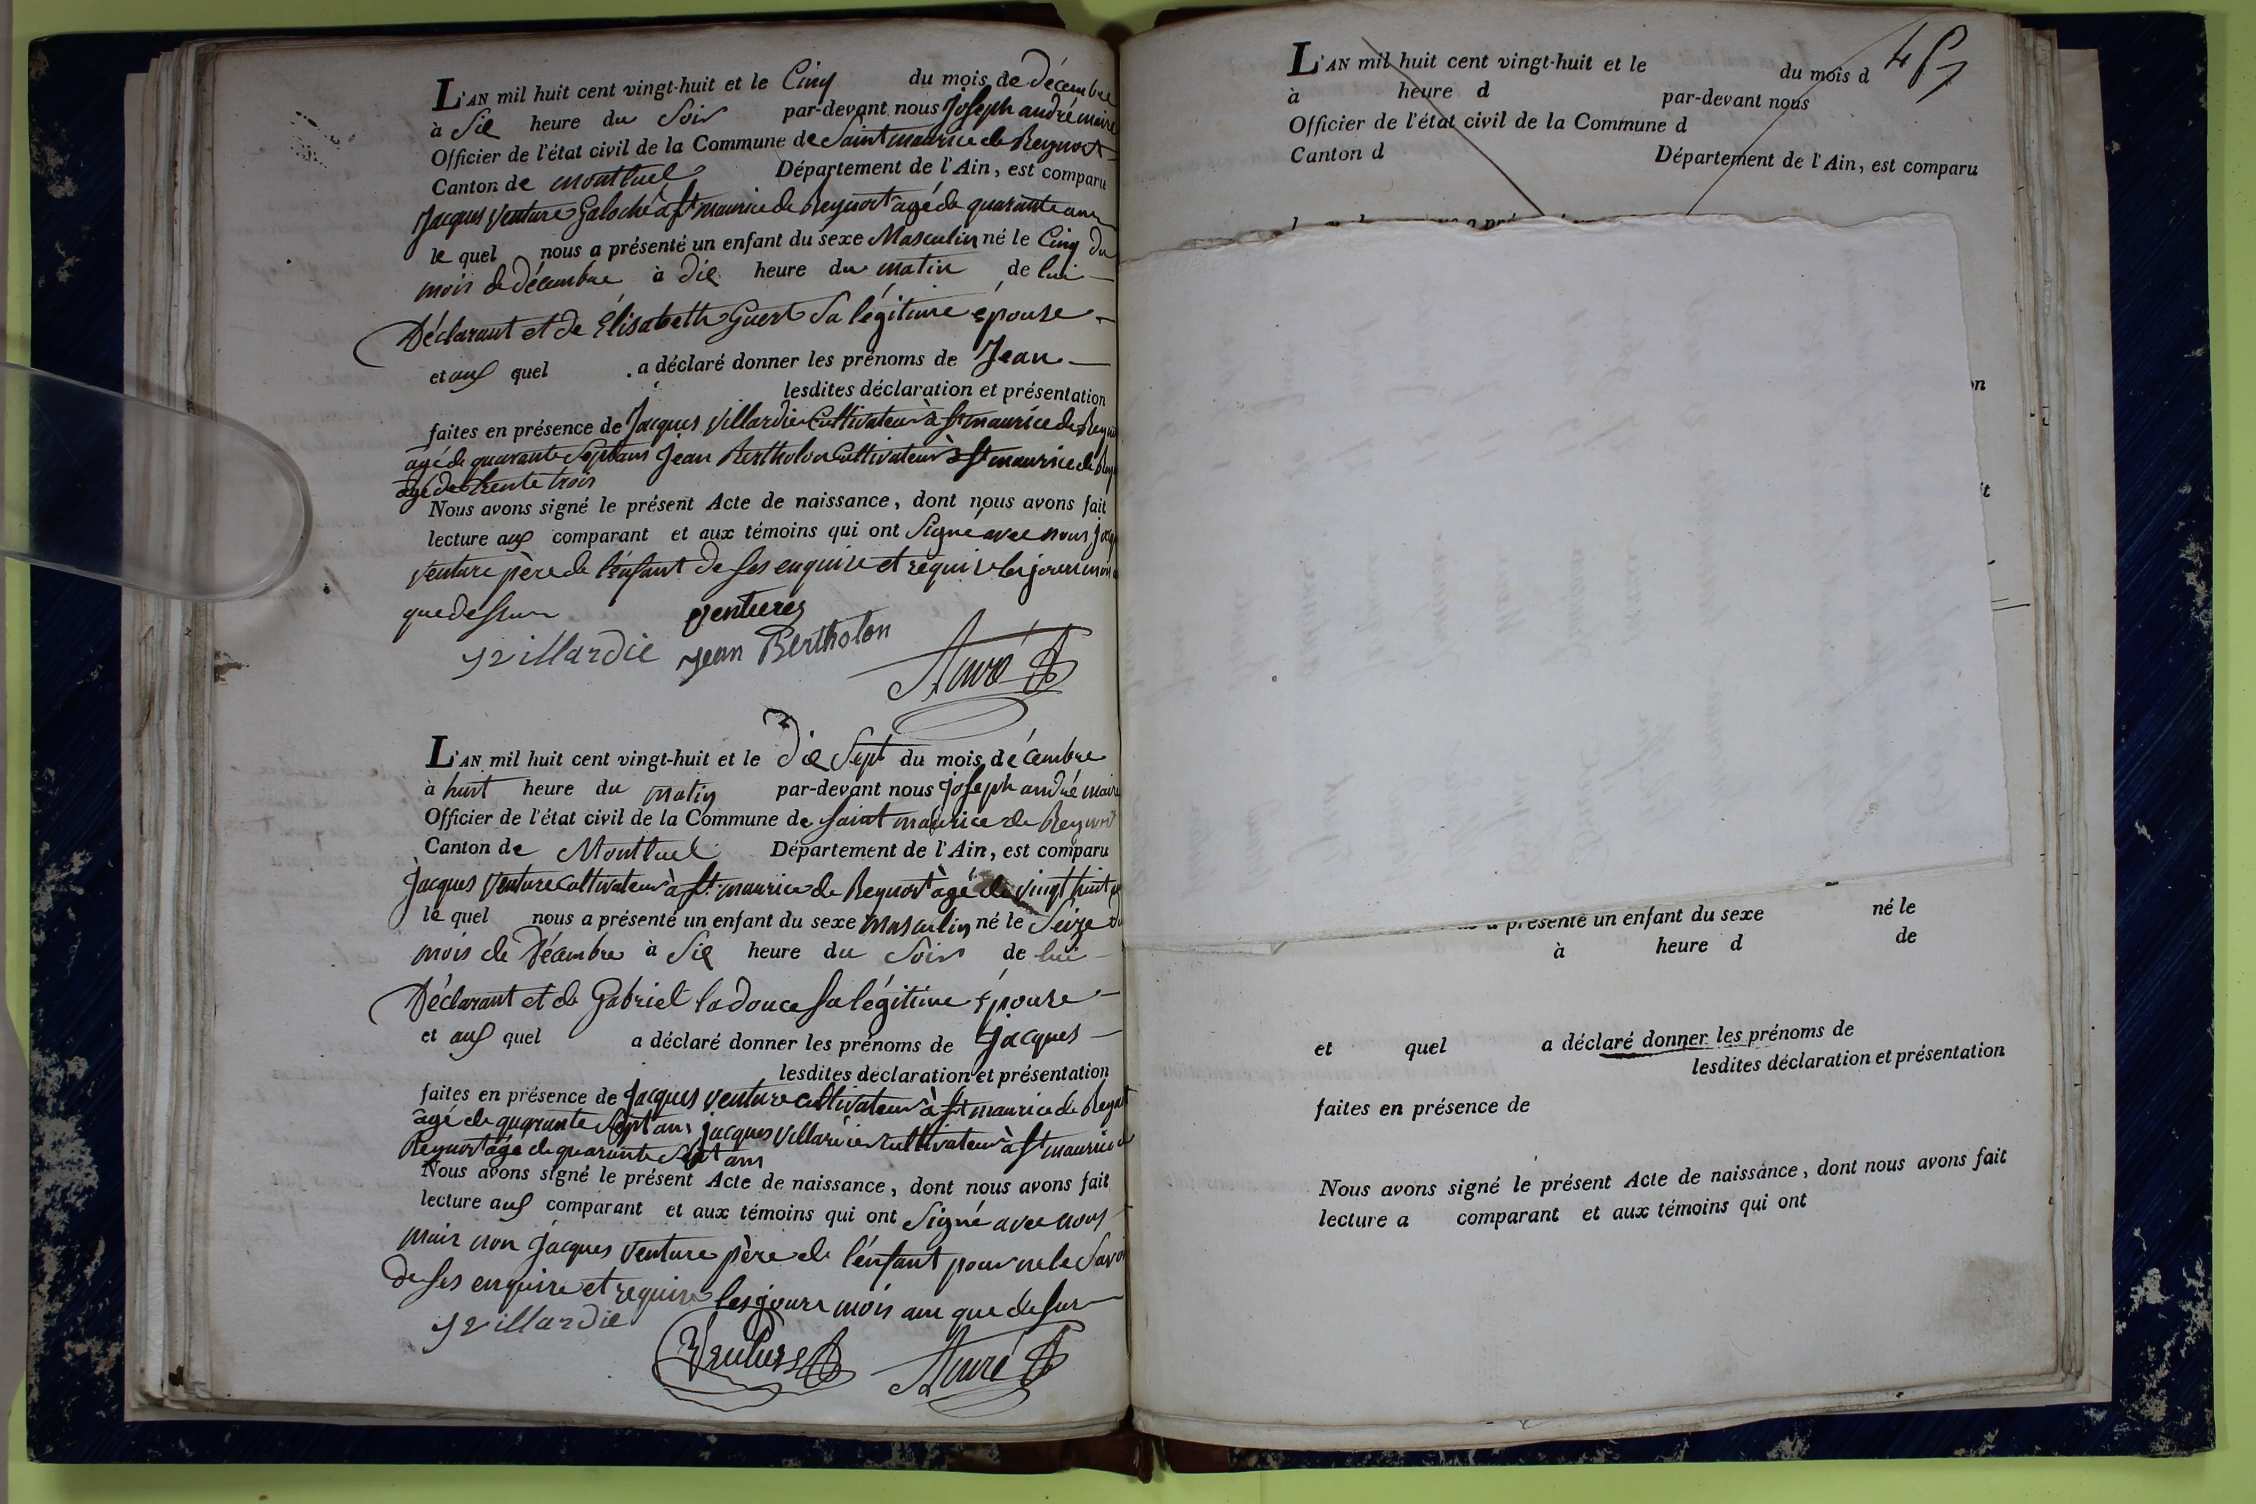 L'AN mil huit cent vingt-huit et le Cinq du mois de décembre
à Six heure du Soir par-devant nous Joseph andré maire
Officier de l'état civil de la Commune de Saint maurice de Beynost
Canton de montluel Département de l'Ain, est comparu
Jacques Venture Galoché à St maurice de Beynost agé de quarante ans
le quel nous a présenté un enfant du sexe Masculin né le Cinq du
mois de décembre à dix heure du matin de lui
Déclarant et de Élisabeth Guert Sa légitime épouse
et auq quel a déclaré donner les prénoms de Jean
lesdites déclaration et présentation
faites en présence de Jacques Villardier Cultivateur à St maurice de Beyn
agé de quarante Sept ans Jean Bertholon Cultivateur à St maurice de Bey
agé de trente trois
Nous avons signé le présent Acte de naissance, dont nous avons fait
lecture aux comparant et aux témoins qui ont Signé avec nous
Venture père de l'enfant de ses enquire et require les jour mois
que dessus
Ventures
J villardie Jean Bertholon
André
L'AN mil huit cent vingt-huit et le dix Sept du mois décembre
à huit heure du matin par-devant nous Joseph andré maire
Officier de l'état civil de la Commune de Saint maurice de Beynost
Canton de Montluel Département de l'Ain, est comparu
Jacques Venture cultivateur à St maurice de Beynost àgé de vingt huit
le quel nous a présenté un enfant du sexe masculin né le Seize du
mois de Décembre à Six heure du Soir de lui
Déclarant et de Gabriel ladouce Sa légitime épouse
et auq quel a déclaré donner les prénoms de Jacques
lesdites déclaration et présentation
faites en présence de Jacques Venture cultivateur à St maurice de Beynost
agé de quarante Sept ans Jacques Villardier cultivateur à St maurice de
Beynost agé de quarante Sept ans
Nous avons signé le présent Acte de naissance, dont nous avons fait
lecture aux comparant et aux témoins qui ont Signé avec nous
mais non Jacques Venture père de l'énfant pour ne le Savoir
de ses enquire et require les jours mois an que de sur
J villardie
Venture André
L'AN mil huit cent vingt-huit et le du mois d
à heure d par-devant nous
Officier de l'état civil de la Commune d
Canton d Département de l'Ain, est comparu
on
it
présenté un enfant du sexe né le
à heure d de
et quel a déclaré donner les prénoms de
lesdites déclaration et présentation
faites en présence de
Nous avons signé le présent Acte de naissance, dont nous avons fait
lecture a comparant et aux témoins qui ont